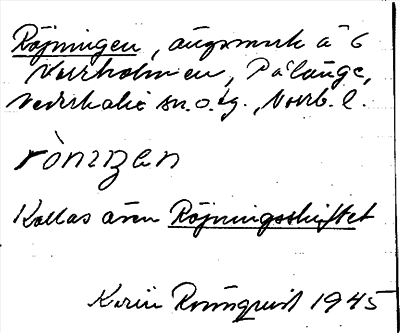 Röjningen, ängsmark å 6
Storholmen, Pålänge,
Nederkalix sn. o. tg., Norrb. l.
rònizen
Kallas även Röjningsskiftet
Karin Rönnquist 1945